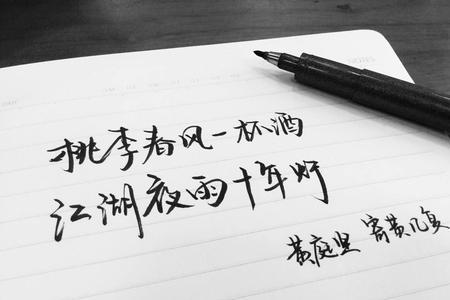 桃李春风一杯酒
江湖夜雨十年灯
黄庭坚 寄黄几复